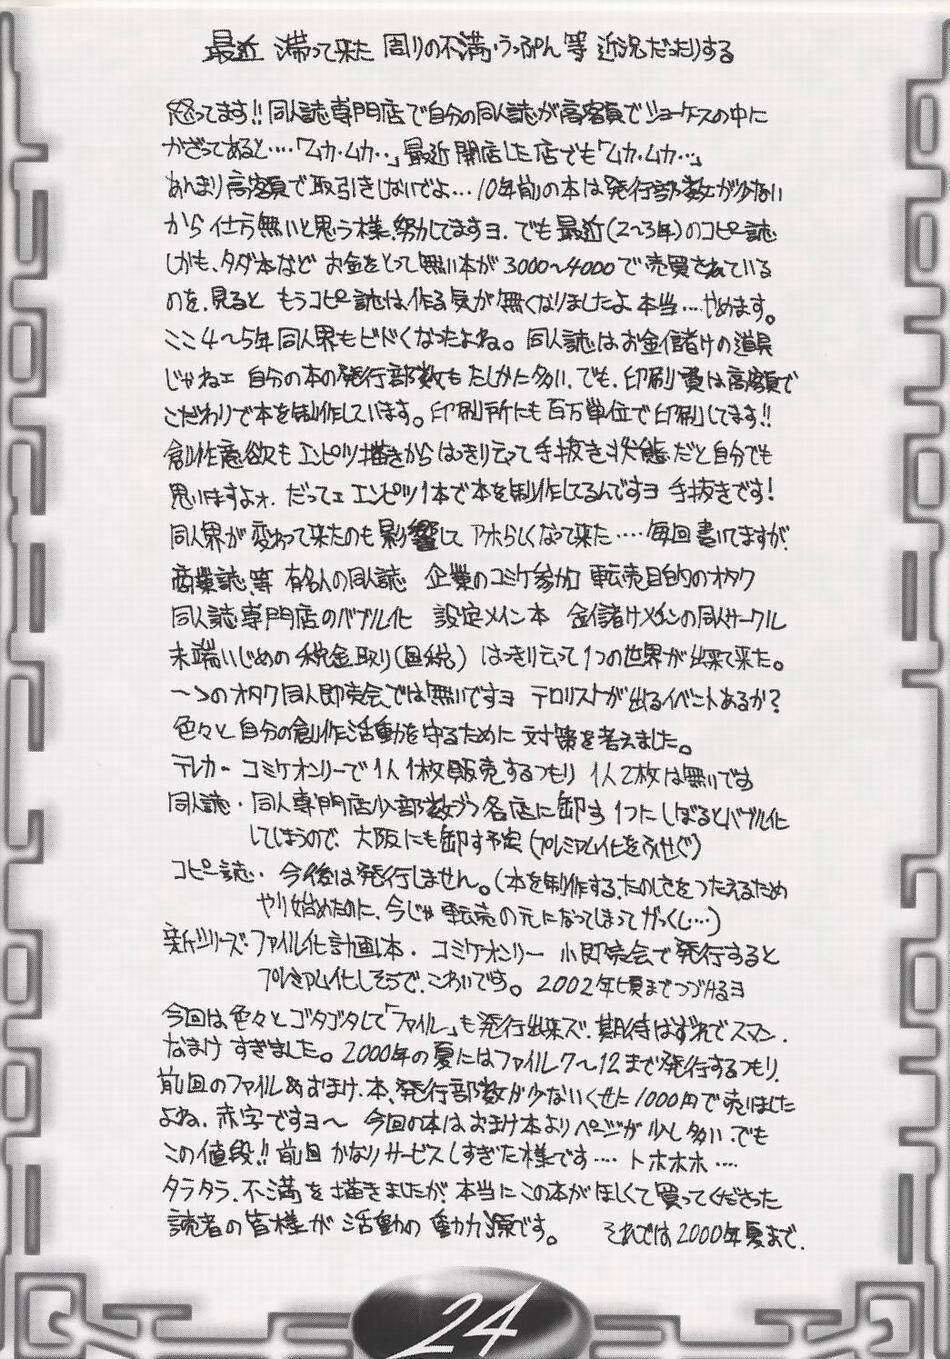 最近 滞って来た 周りの不満・うっぷん等 近況だったりする
怒ってます!! 同人誌専門店で自分の同人誌が高額でショーケースの中に
かざってあると‥‥「ムカ・ムカ‥」最近開店した店でも「ムカ・ムカ‥」
あんまり高額で取引きしないでよ… 10年前の本は発行部数が少ない
から仕方無いと思う様、努力してますヨ. でも最近(2〜3年)のコピー誌
しかも、タダ本など お金をとって無い本が3000〜4000で売買されている
のを、見ると もうコピー誌は、作る気が無くなりましたよ 本当…やめます。
ここ4〜5年同人界もヒドくなったよね。 同人誌はお金儲けの道具
じゃねェ 自分の本の発行部数もたしかに多い、でも、印刷費は高額で
こだわりで本を制作しています。印刷所にも百万単位で印刷してます!!
創作意欲も エンピツ描きから はっきり云って手抜き状態だと自分でも
思いますよォ. だってェ エンピツ1本で本を制作してるんですヨ 手抜きです!
同人界が変わって来たのも影響して アホらしくなって来た‥‥毎回書いてますが、
商業誌、等 有名人の同人誌 企業のコミケ参加 転売目的のオタク
同人誌専門店のバブル化 設定メイン本 金儲けメインの同人サークル
末端いじめの税金取り(国税) はっきり云って1つの世界が出来て来た。
一つのオタク同人即売会では無いですヨ テロリストが出るイベントあるか?
色々と自分の創作活動を守るために対策を考えました。
テレカ・ コミケオンリーで1人1枚販売するつもり 1人2枚は無いです
同人誌・同人専門店少部数づつ各店に卸す 1つにしぼるとバブル化
してしまうので、大阪にも卸す予定(プレミアム化をふせぐ)
コピー誌・ 今後は発行しません。(本を制作する、たのしさをつたえるため
やり始めたのに、今じゃ転売の元になってしまって がっくし…)
新シリーズ・ファイル化計画本・ コミケオンリー 小即売会で発行すると
プレミアム化しそうで、こわいです。 2002年頃までつづけるヨ
今回は色々とゴタゴタして「ファイル」も発行出来ズ、期待はずれでスマン.
なまけすぎました。2000年の夏にはファイル7〜12まで発行するつもり.
前回のファイル&おまけ.本、発行部数が少ないくせに1000円で売りました
よね. 赤字ですヨ〜 今回の本は、おまけ本よりページが少し多い、でも
この値段!! 前回かなりサービスしすぎた様です‥‥ トホホホ‥‥
タラタラ、不満を描きましたが、本当にこの本がほしくて買ってくださった
読者の皆様が活動の動力源です。 それでは2000年夏まで.
24